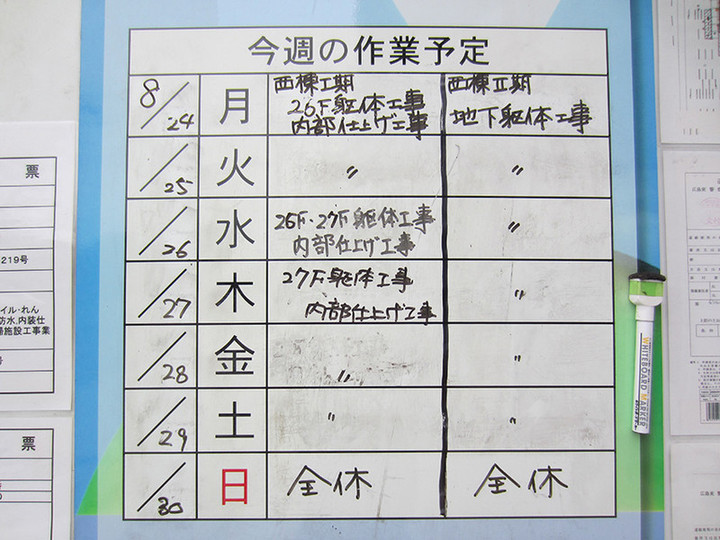 今週の作業予定
8/24 月 西棟Ⅰ期 西棟Ⅱ期
26F躯体工事 地下躯体工事
内部仕上げ工事
/25 火 〃 〃
/26 水 26F・27F躯体工事 〃
内部仕上げ工事
/27 木 27F躯体工事 〃
内部仕上げ工事
/28 金 〃 〃
/29 土 〃 〃
/30 日 全休 全休
WHITEBOARD MARKER
票
219号
イル・れん
防水,内装仕
票